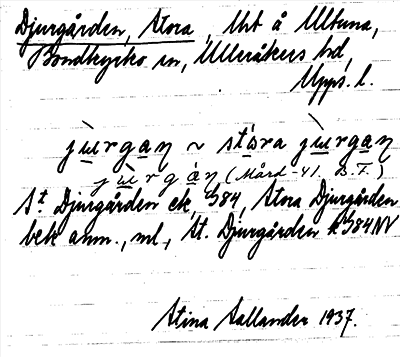 Djurgården, Stora, lht å Ultuna,
Bondkyrko sn, Ulleråkers hd,
Upps. l.
jùrgaṇ ~ stóra jùrgaṇ
jùrgàṇ (Mård -41. B.T.)
St Djurgården ek, G84, Stora Djurgården
bek anm., ml, St. Djurgården k G84NV
Stina Sallander 1937.